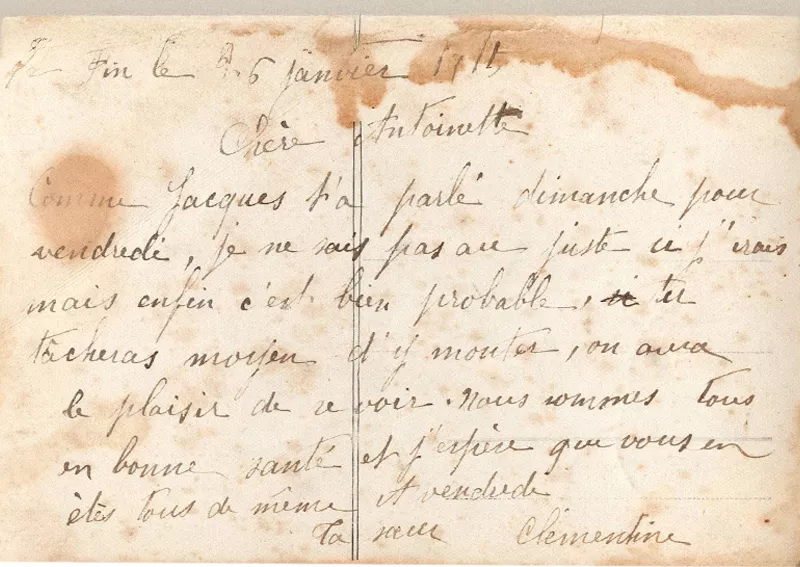 Fin le 6 janvier
Chère Antoinette
Comme Jacques t'a parlé dimanche pour
vendredi, je ne sais pas au juste si j'irais
mais enfin c'est bien probable, si tu
tâcheras moyen d'y monter, on aura
le plaisir de se voir. nous sommes tous
en bonne santé et j'espère que vous en
êtes tous de même A vendredi
Ta sœur Clémentine